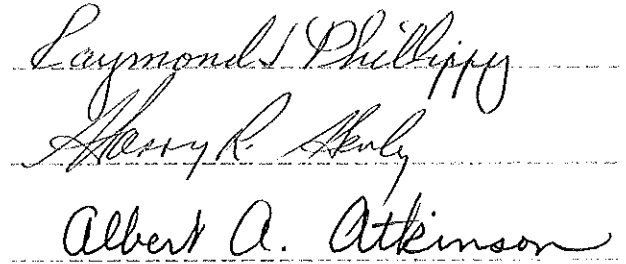 Raymond J Phillippy
Harry R. Henly
Albert A. Atkinson